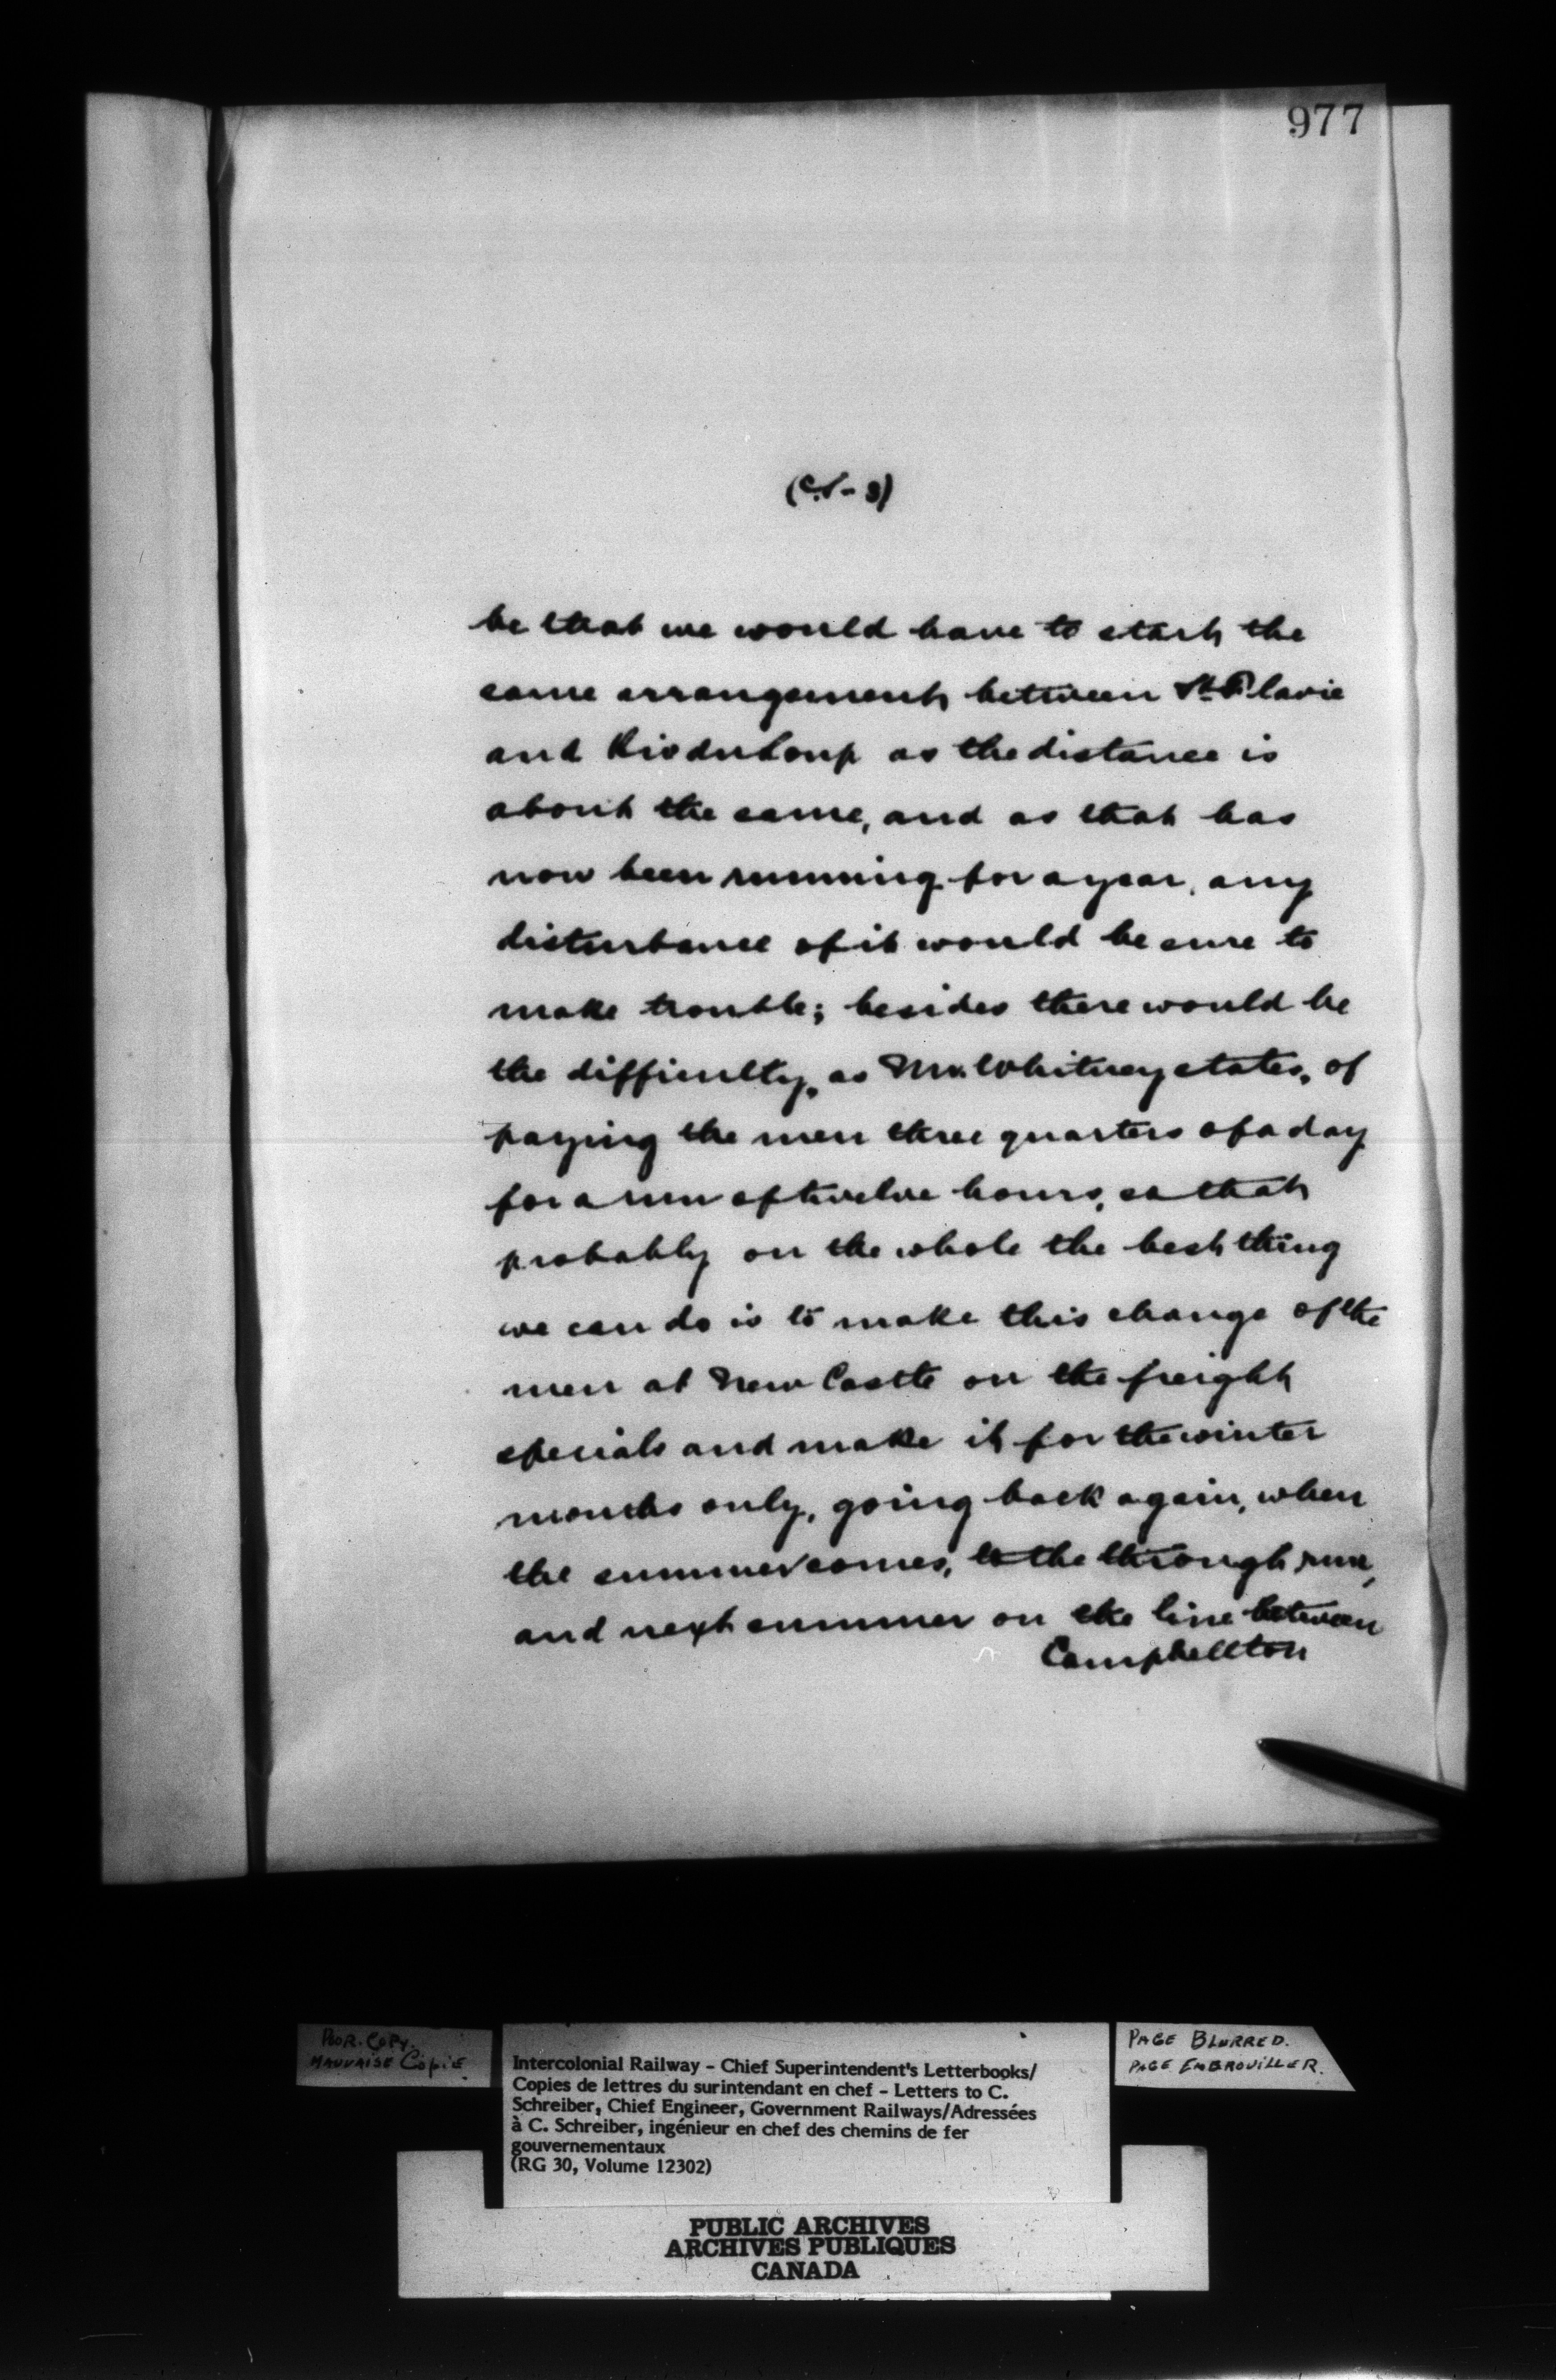 977
(C.S - 3)
be that we would have to start the
same arrangement between St. Flavie
and Riv du Loup as the distance is
about the same, and as that has
now been running for a year, any
disturbance of it would be sure to
make trouble; besides there would be
the difficulty, as Mr. Whitney states, of
paying the men three quarters of a day
for a run of twelve hours, so that
probably on the whole the best thing
we can do is to make this change of the
men at New Castle on the freight
specials and make it for the winter
months only, going back again, when
the summer comes, to the through run,
and next summer on the line between
Campbellton
POOR. COPY.
MAUVAISE COPIE
Intercolonial Railway - Chief Superintendent's Letterbooks/
Copies de lettres du surintendant en chef - Letters to C.
Schreiber, Chief Engineer, Government Railways/Adressées
à C. Schreiber, ingénieur en chef des chemins de fer
gouvernementaux
(RG 30, Volume 12302)
PAGE BLURRED.
PAGE EMBROUILLER.
PUBLIC ARCHIVES
ARCHIVES PUBLIQUES
CANADA